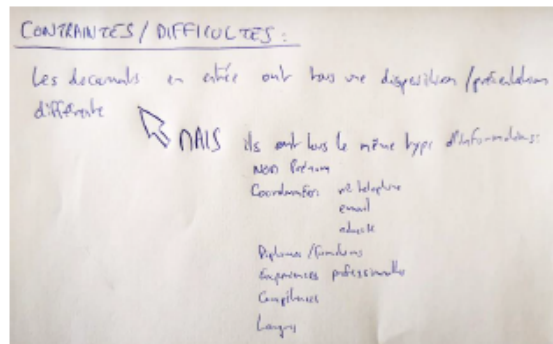 CONTRAINTES / DIFFICULTES :
Les documents en entrée ont tous une disposition / présentation
différente
MAIS ils ont tous le même type d'informations:
NOM Prénom
Coordonnées n° téléphone
email
adresse
Diplômes / formations
Expériences professionnelles
Compétences
Langues